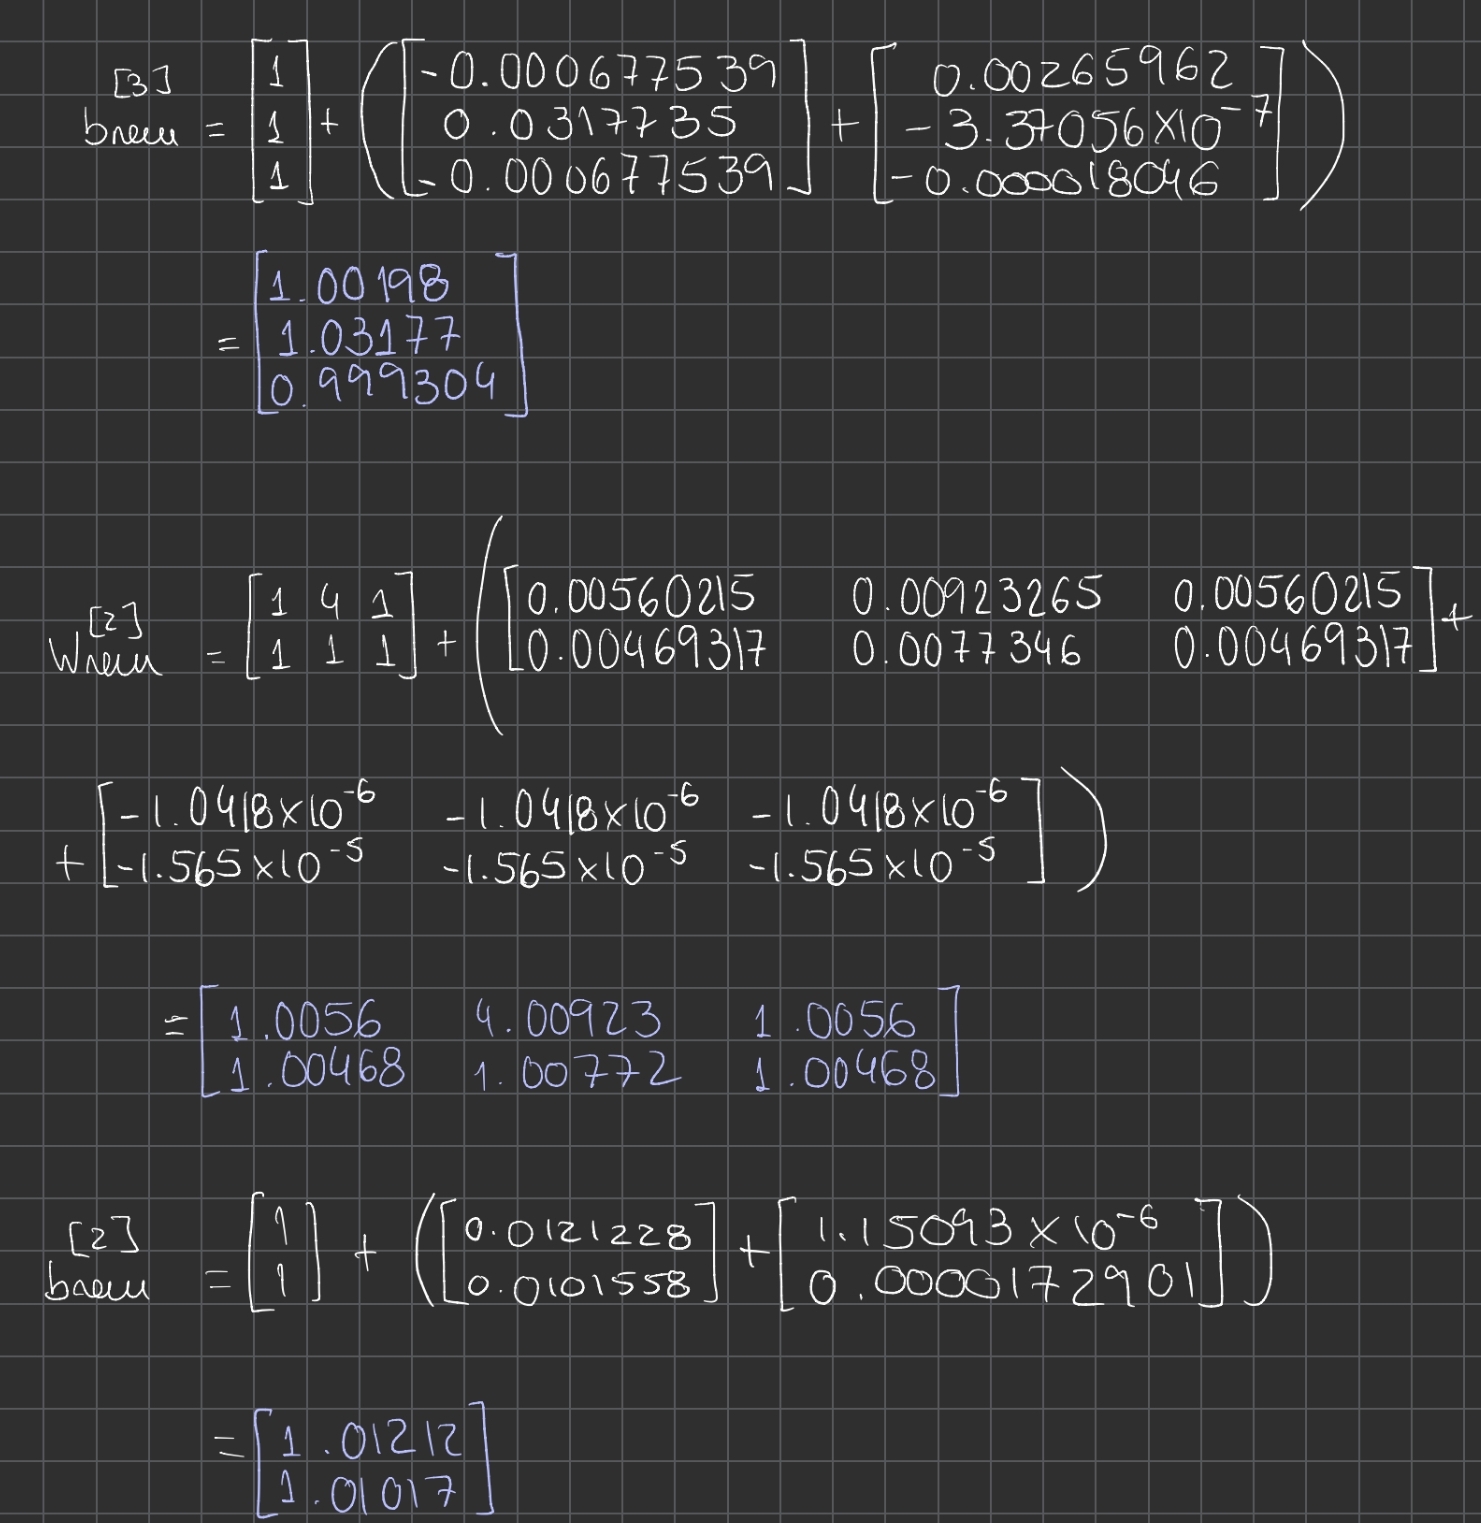 b_new^[3] = [1; 1; 1] + ([-0.000677539; 0.0317735; -0.000677539] + [0.00265962; -3.37056×10^-7; -0.000018046])
= [1.00198; 1.03177; 0.999304]
W_new^[2] = [1 4 1; 1 1 1] + ([0.00560215 0.00923265 0.00560215; 0.00469317 0.0077346 0.00469317] +
+ [-1.0418×10^-6 -1.0418×10^-6 -1.0418×10^-6; -1.565×10^-5 -1.565×10^-5 -1.565×10^-5])
= [1.0056 4.00923 1.0056; 1.00468 1.00772 1.00468]
b_new^[2] = [1; 1] + ([0.0121228; 0.0101558] + [1.15093×10^-6; 0.0000172901])
= [1.01212; 1.01017]